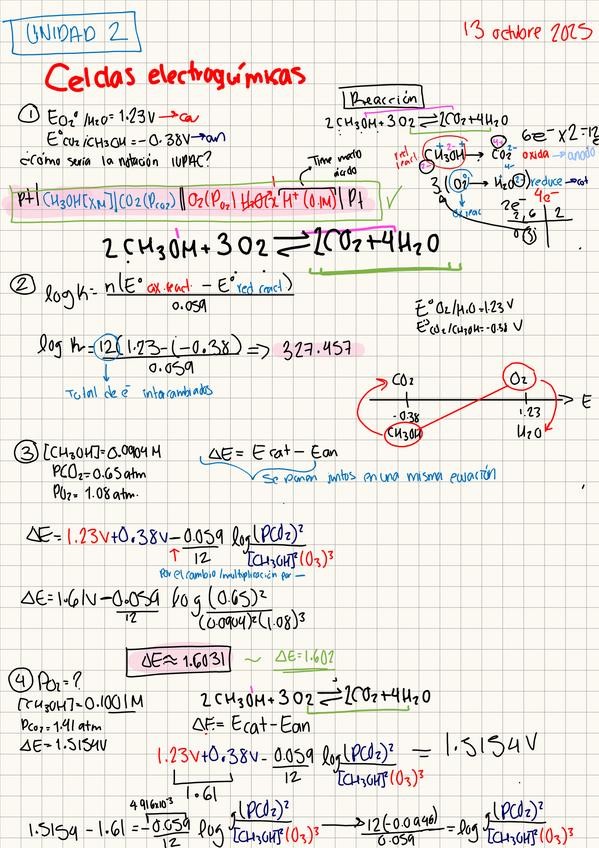 UNIDAD 2
13 octubre 2025
Celdas electroquímicas
① E O₂°/H₂O = 1.23V → ca
E°CO₂/CH₃OH = -0.38V → an
¿Cómo sería la notación IUPAC?
Reacción
2CH₃OH + 3O₂ ⇌ 2CO₂ + 4H₂O
red react
CH₃OH → CO₂ oxida → anodo
6e⁻ x2 = 12
3(O₂) → H₂O reduce → cat
4e⁻
Tiene medio ácido
Pt | CH₃OH [XM] | CO₂ (PCO₂) || O₂ (PO₂) | H⁺ (0.1M) | Pt ✓
2 CH₃OH + 3 O₂ ⇌ 2CO₂ + 4H₂O
② log K = n(E° ox.react. - E° red react) / 0.059
E° O₂/H₂O = 1.23 V
E°CO₂/CH₃OH = -0.38 V
log K = 12(1.23 - (-0.38)) / 0.059 => 327.457
Total de e⁻ intercambiados
CO₂ O₂
E
-0.38 1.23
CH₃OH H₂O
③ [CH₃OH] = 0.0904 M
PCO₂ = 0.65 atm
PO₂ = 1.08 atm.
ΔE = E cat - E an
Se ponen juntos en una misma ecuación
ΔE = 1.23V + 0.38V - 0.059/12 log (PCO₂)² / [CH₃OH]² (O₃)³
Por el cambio/multiplicación por -
ΔE = 1.61V - 0.059/12 log (0.65)² / (0.0904)² (1.08)³
ΔE ≈ 1.6031 ~ ΔE = 1.602
④ PO₂ = ?
[CH₃OH] = 0.1001 M
PCO₂ = 1.41 atm
ΔE = 1.5154V
2 CH₃OH + 3 O₂ ⇌ 2CO₂ + 4H₂O
ΔE = Ecat - Ean
1.23V + 0.38V - 0.059/12 log (PCO₂)² / [CH₃OH]² (O₃)³ = 1.5154 V
1.61
4.916x10⁻³
1.5154 - 1.61 = -0.059/12 log (PCO₂)² / [CH₃OH]² (O₃)³ → 12(-0.0946) / 0.059 = log (PCO₂)² / [CH₃OH]² (O₃)³